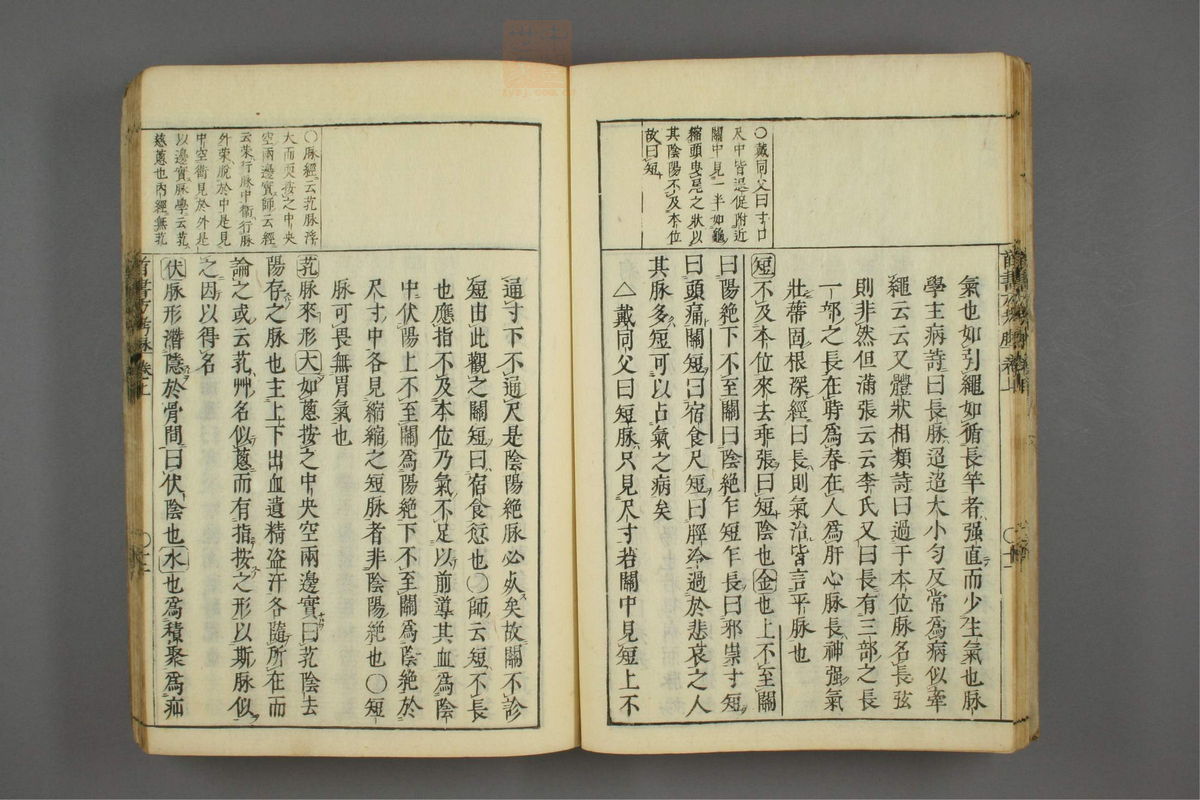 ○戴同父曰寸口
尺中皆退促附近
關中見一半如龜
縮頭曳尾之狀以
其陰陽不及本位
故曰短
氣也如引繩如循長竿者强直而少生氣也脉
學主病詩曰長脉迢迢大小勻反常爲病似牽
繩云云又體狀相類詩曰過于本位脉名長弦
則非然但滿張云云李氏又曰長有三部之長
一部之長在時爲春在人爲肝心脉長神强氣
壯蒂固根深經曰長則氣治皆言平脉也
短不及本位來去乖張曰短陰也金也上不至關
曰陽絶下不至關曰陰絶乍短乍長曰邪祟寸短
曰頭痛關短曰宿食尺短曰脛冷過於悲哀之人
其脉多短可以占氣之病矣
△戴同父曰短脉只見尺寸若關中見短上不
○脉經云芤脉浮
大而耎按之中央
空兩邊實師云經
云榮行脉中衞行脉
外榮脫於中是見
中空衞見於外是
以邊實脉學云芤
慈葱也內經無芤
通寸下不通尺是陰陽絶脉必死矣故關不診
短由此觀之關短曰宿食愆也○師云短不長
也應指不及本位乃氣不足以前導其血爲陰
中伏陽上不至關爲陽絶下不至關爲陰絶於
尺寸中各見縮縮之短脉者非陰陽絶也○短
脉可畏無胃氣也
芤脉來形大如葱按之中央空兩邊實曰芤陰去
陽存之脉也主上下出血遺精盗汗各隨所在而
論之或云芤艸名似葱而有指按之形以斯脉似
之因以得名
伏脉形潛隱於骨間曰伏陰也水也爲積聚爲疝